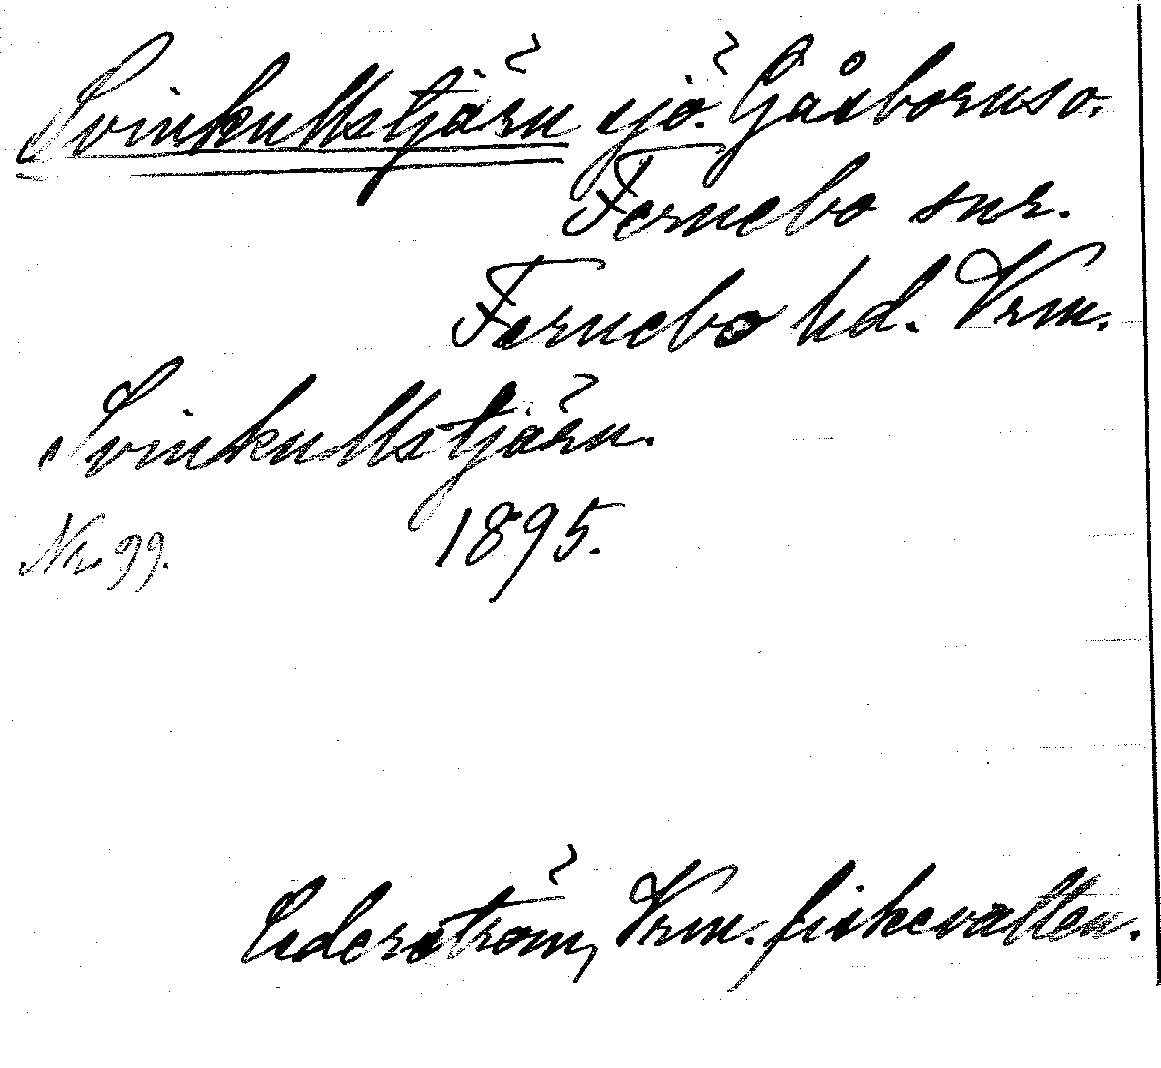 Svinkullstjärn sjö. Gåsborns o.
Fernebo snr.
Fernebo hd. Vrm.
Svinkullstjärn.
Nr. 99. 1895.
Cederström, Vrm. fiskevatten.